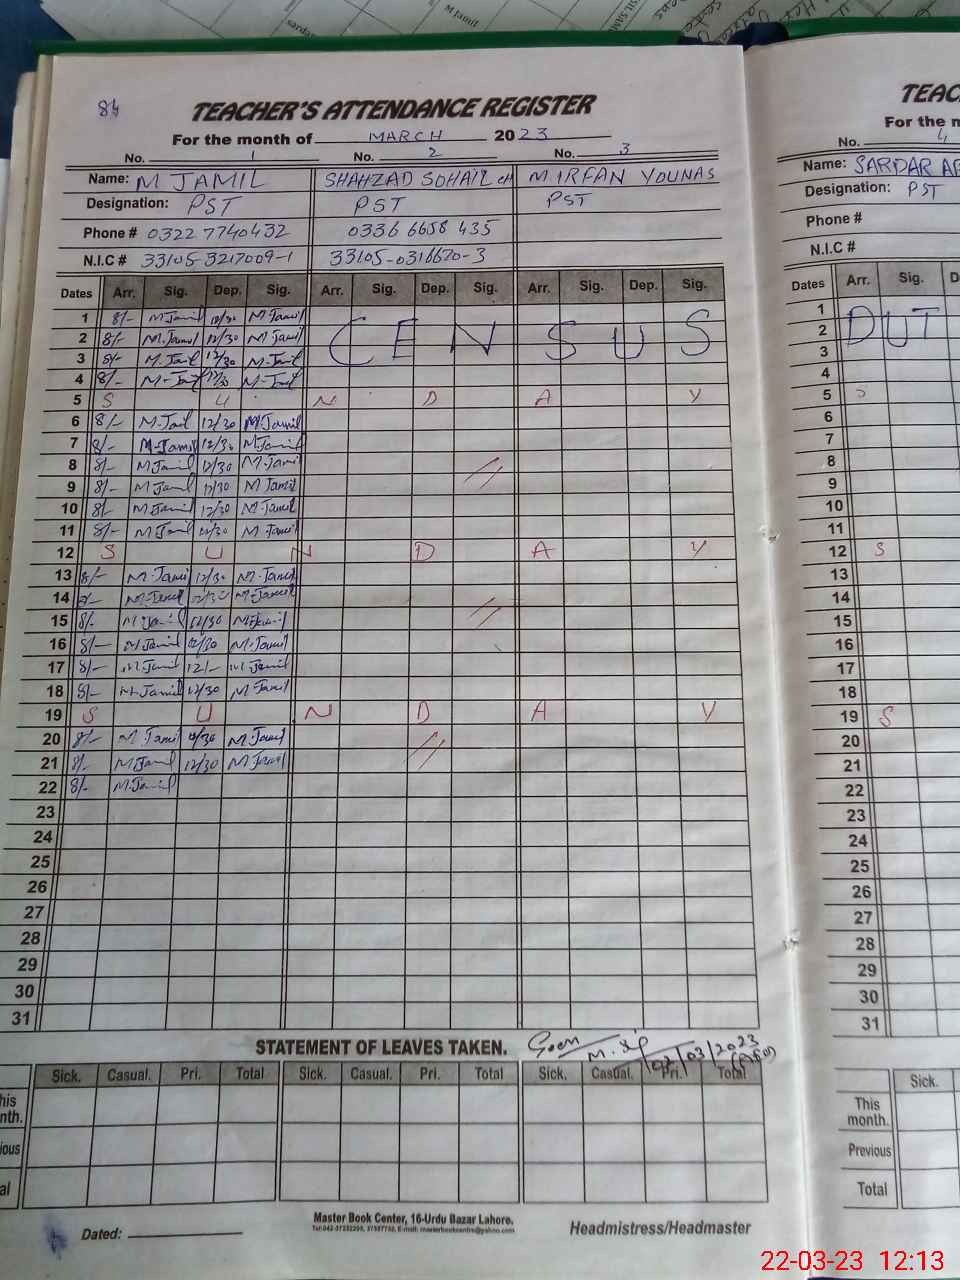 M Jamil
84
TEACHER'S ATTENDANCE REGISTER
For the month of MARCH 2023
No. 1 No. 2 No. 3
Name: M JAMIL SHAHZAD SOHAIL CH M. IRFAN YOUNAS
Designation: PST PST PST
Phone # 0322 7740432 0336 6658 435
N.I.C # 33105-3217009-1 33105-0316620-3
Dates Arr. Sig. Dep. Sig. Arr. Sig. Dep. Sig. Arr. Sig. Dep. Sig.
1 8/- M Jamil 12/30 M Jamil
2 8/- M. Jamil 12/30 M. Jamil CENSUS
3 8/- M. Jamil 12/30 M. Jamil
4 8/- M. Jamil 12/30 M. Jamil
5 S U N D A Y
6 8/- M. Jamil 12/30 M. Jamil
7 8/- M. Jamil 12/30 M. Jamil
8 8/- M Jamil 12/30 M. Jamil //
9 8/- M Jamil 12/30 M Jamil
10 8/- M. Jamil 12/30 M. Jamil
11 8/- M Jamil 12/30 M Jamil
12 S U N D A Y
13 8/- M. Jamil 12/30 M. Jamil
14 8/- M. Jamil 12/30 M. Jamil
15 8/- M Jamil 12/30 M. Jamil //
16 8/- M. Jamil 12/30 M. Jamil
17 8/- M Jamil 12/- M. Jamil
18 8/- M. Jamil 12/30 M. Jamil
19 S U N D A Y
20 8/- M. Jamil 12/30 M. Jamil //
21 8/- M. Jamil 12/30 M Jamil
22 8/- M. Jamil
23
24
25
26
27
28
29
30
31
STATEMENT OF LEAVES TAKEN.
Seen
02/03/2023
Sick. Casual. Pri. Total Sick. Casual. Pri. Total Sick. Casual. Pri. Total
his
nth.
ious
al
Dated:
Master Book Center, 16-Urdu Bazar Lahore.
Headmistress/Headmaster
TEAC
For the m
No. 4
Name: SARDAR AB
Designation: PST
Phone #
N.I.C #
Dates Arr. Sig. D
1
2 DUT
3
4
5 S
6
7
8
9
10
11
12 S
13
14
15
16
17
18
19 S
20
21
22
23
24
25
26
27
28
29
30
31
Sick.
This
month.
Previous
Total
22-03-23 12:13